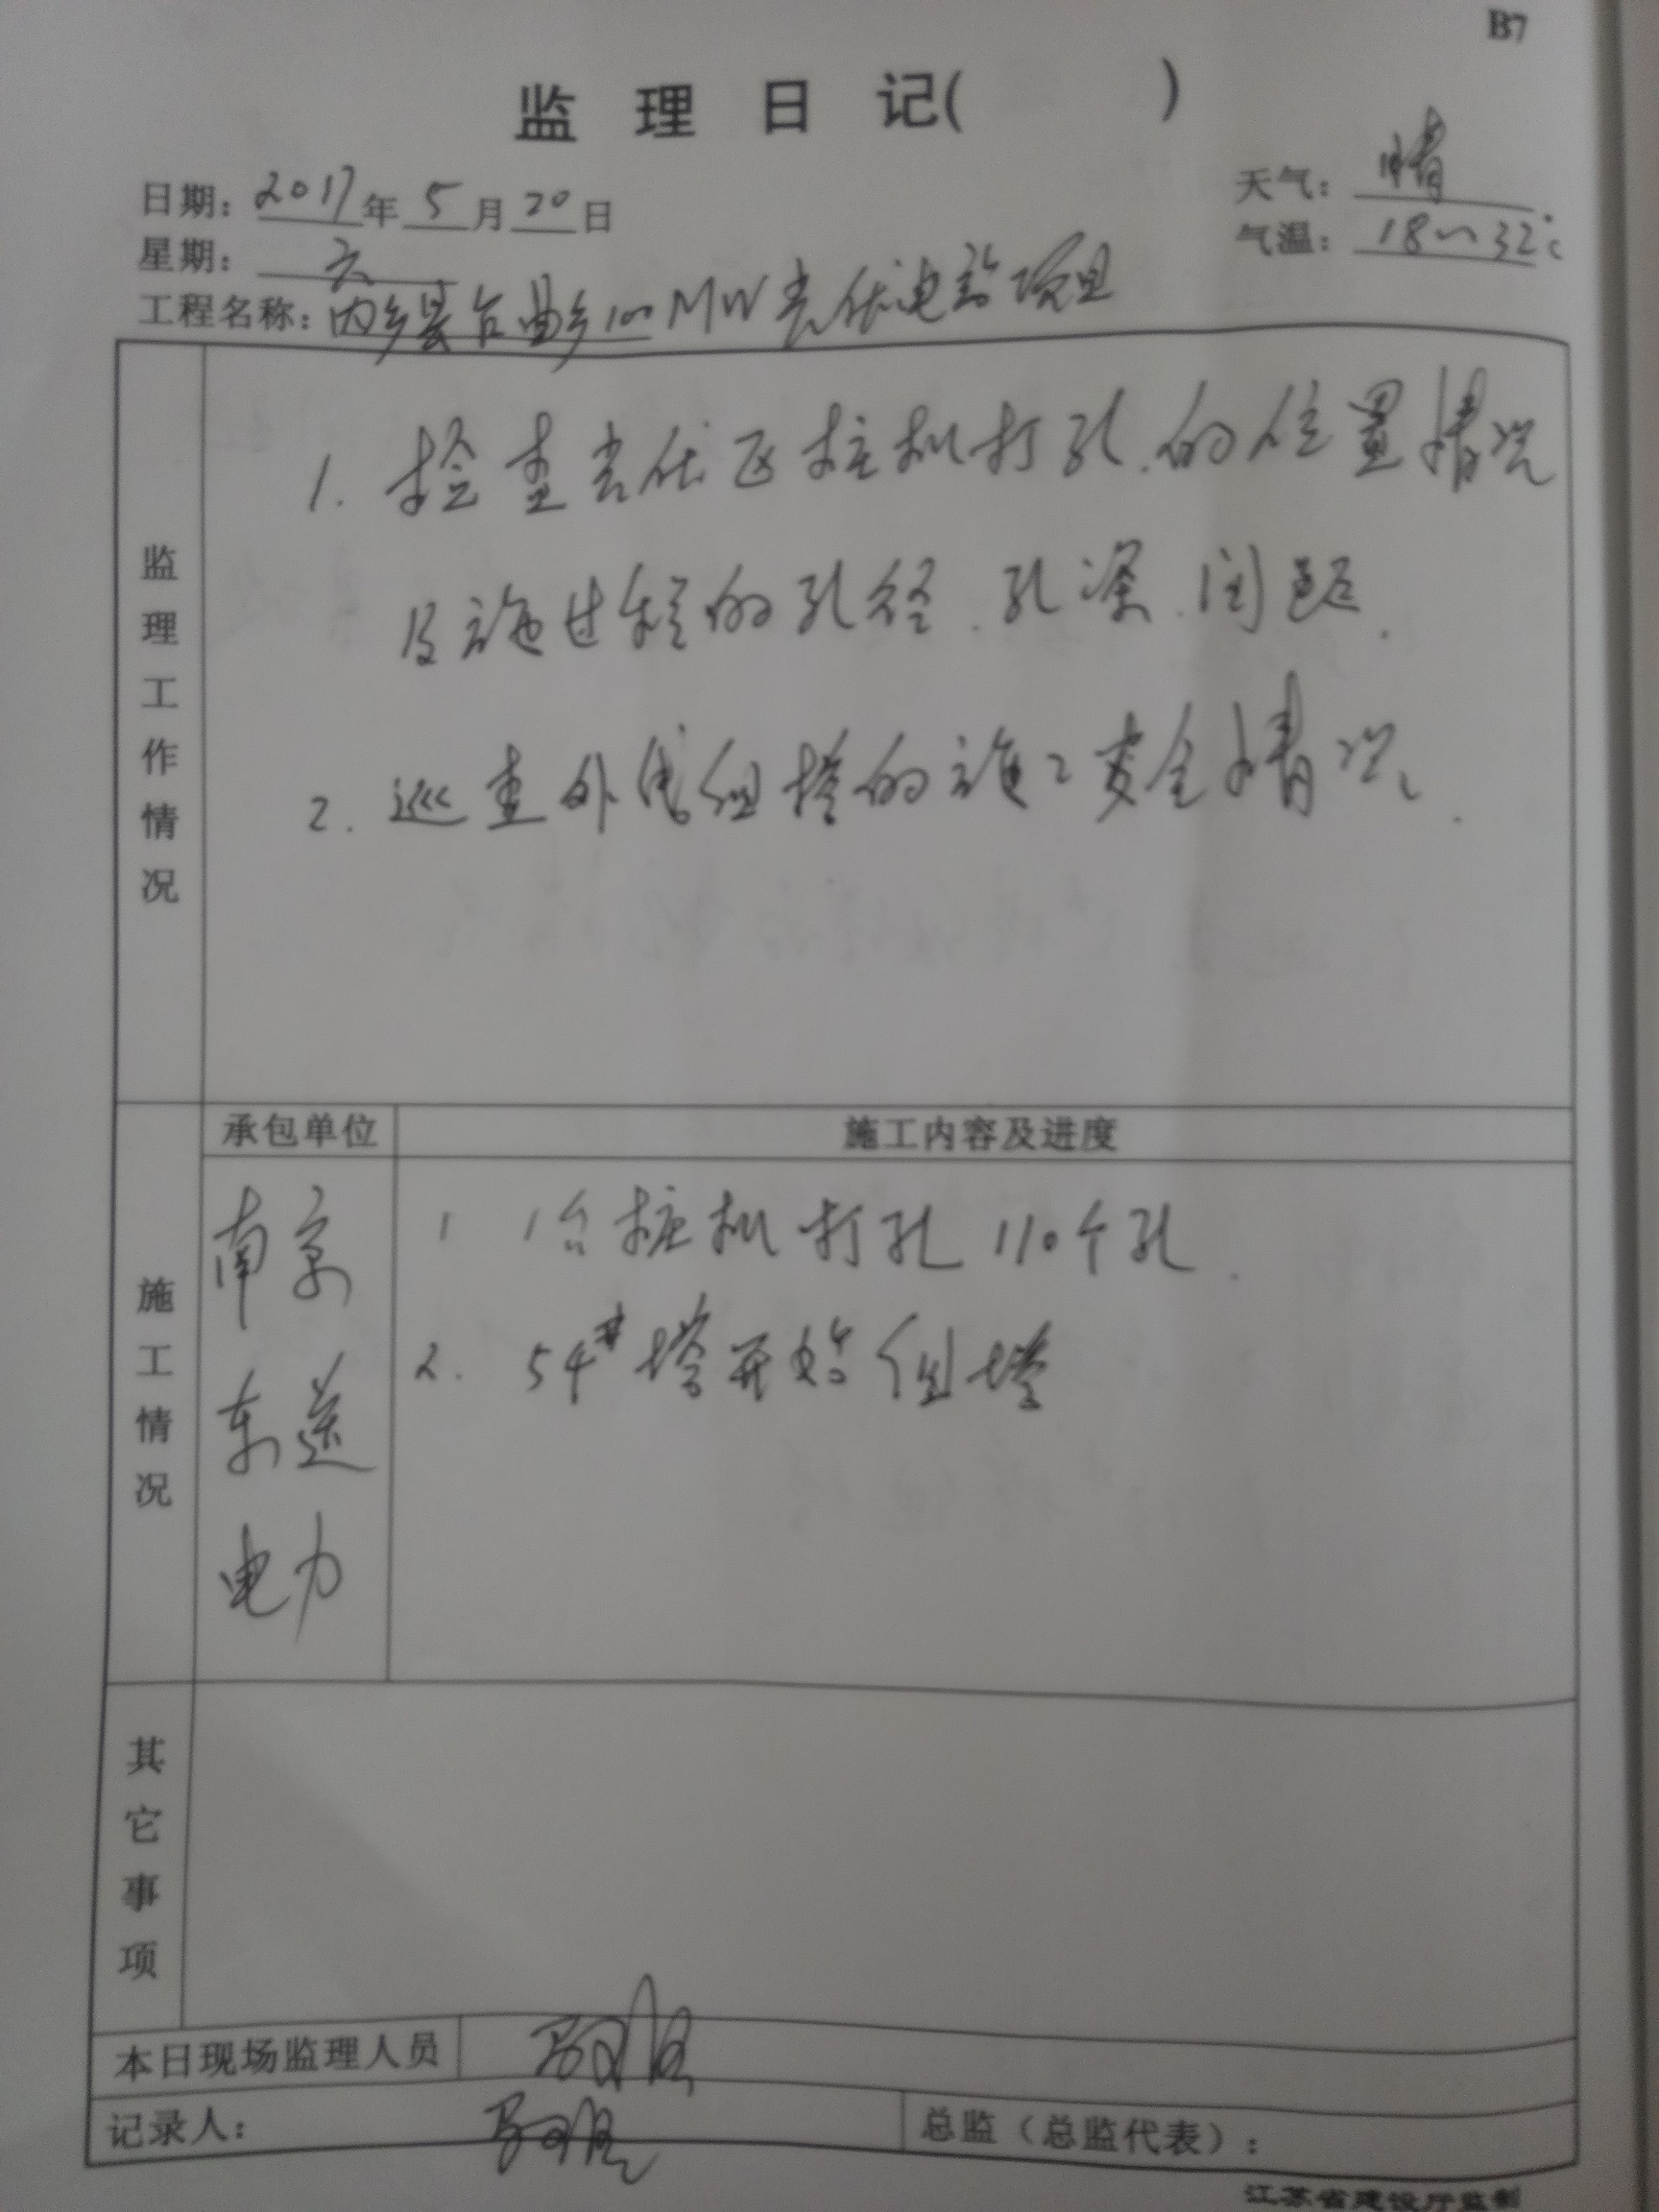 B7
监理日记( )
日期：2017年5月20日 天气：晴
星期：六 气温：18~32℃
工程名称：内乡县台曲乡100MW光伏电站项目
监理工作情况
1. 检查光伏区桩机打孔的位置情况
及施过程的孔径.孔深.间距.
2. 巡查外线组塔的施工安全情况.
施工情况
承包单位 施工内容及进度
南京
东送
电力
1 1台桩机打孔110个孔.
2. 54#塔开始组塔
其它事项
本日现场监理人员
记录人： 总监（总监代表）：
江苏省建设厅监制